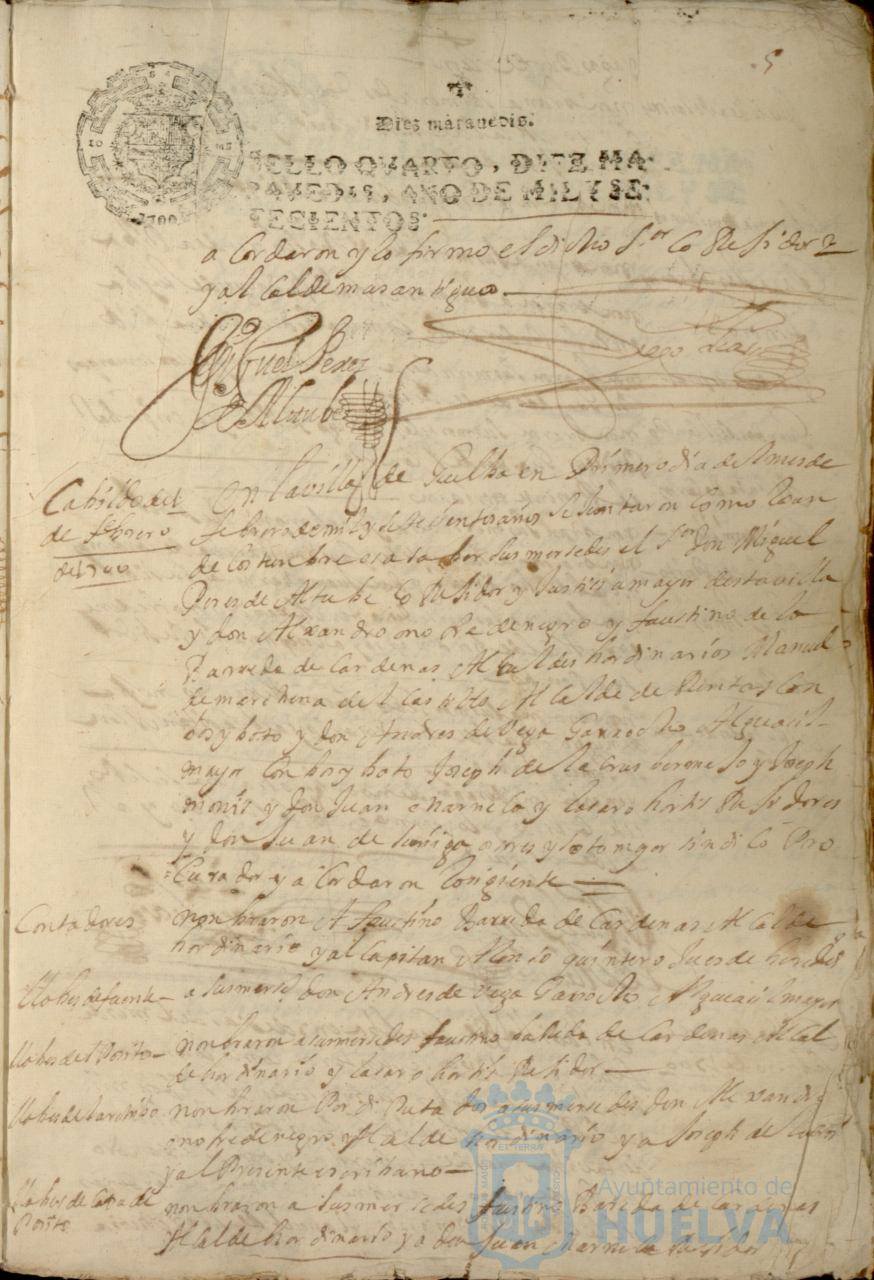 5
Diez marauedis.
SELLO QVARTO, DIEZ MA-
RAVEDIS, AÑO DE MIL Y SE-
TECIENTOS.
1700
acordaron y lo firmo el dicho Sor Corregidor
y alcalde mas antiguo
Miguel Perez
de Altube
Diego
Cabildo del
de febrero
de 1700
En la villa de Guelba en Primero dia del mes de
febrero de mil y setesientos años se juntaron como lo an
de costumbre es a saber sus mersedes el Sor Don Miguel
Peres de Altube Corregidor y Justisia mayor desta villa
y don Alexandro onofre de negro y faustino de la
Barreda de Cardenas Alcaldes hordinarios Manuel
de marchena del Castillo Alcalde de Rentas con
bos y boto y don Andres de Vega Garrocho Alguacil
mayor con bos y boto Joseph de la crus beronelo y Joseph
monis y don Juan charnelo y lasaro hortis Regidores
y don Juan de suñiga y sotomayor sindico Pro
Curador y acordaron lo siguiente
Contadores
nonbraron A faustino Barreda de Cardenas Alcalde
hordinario y al Capitan Alonso quintero
Llabes de fuente
a su mersed don Andres de Vega Garrocho Alguacil mayor
Llabes del Posito
nonbraron a sus mersedes faustino barreda de Cardenas Alcal
de hordinario y lasaro hortis Regidor
Llabes del archibo
nonbraron Por diputados a sus mersedes don Alexandro
onofre de negro Alcalde hordinario y a Joseph de
y al Presente escribano
Llabes de Cara de
Posito
nonbraron a sus mersedes faustino Barreda de Cardenas
Alcalde hordinario y a don Juan charnelo Regidor
Ayuntamiento de
HUELVA